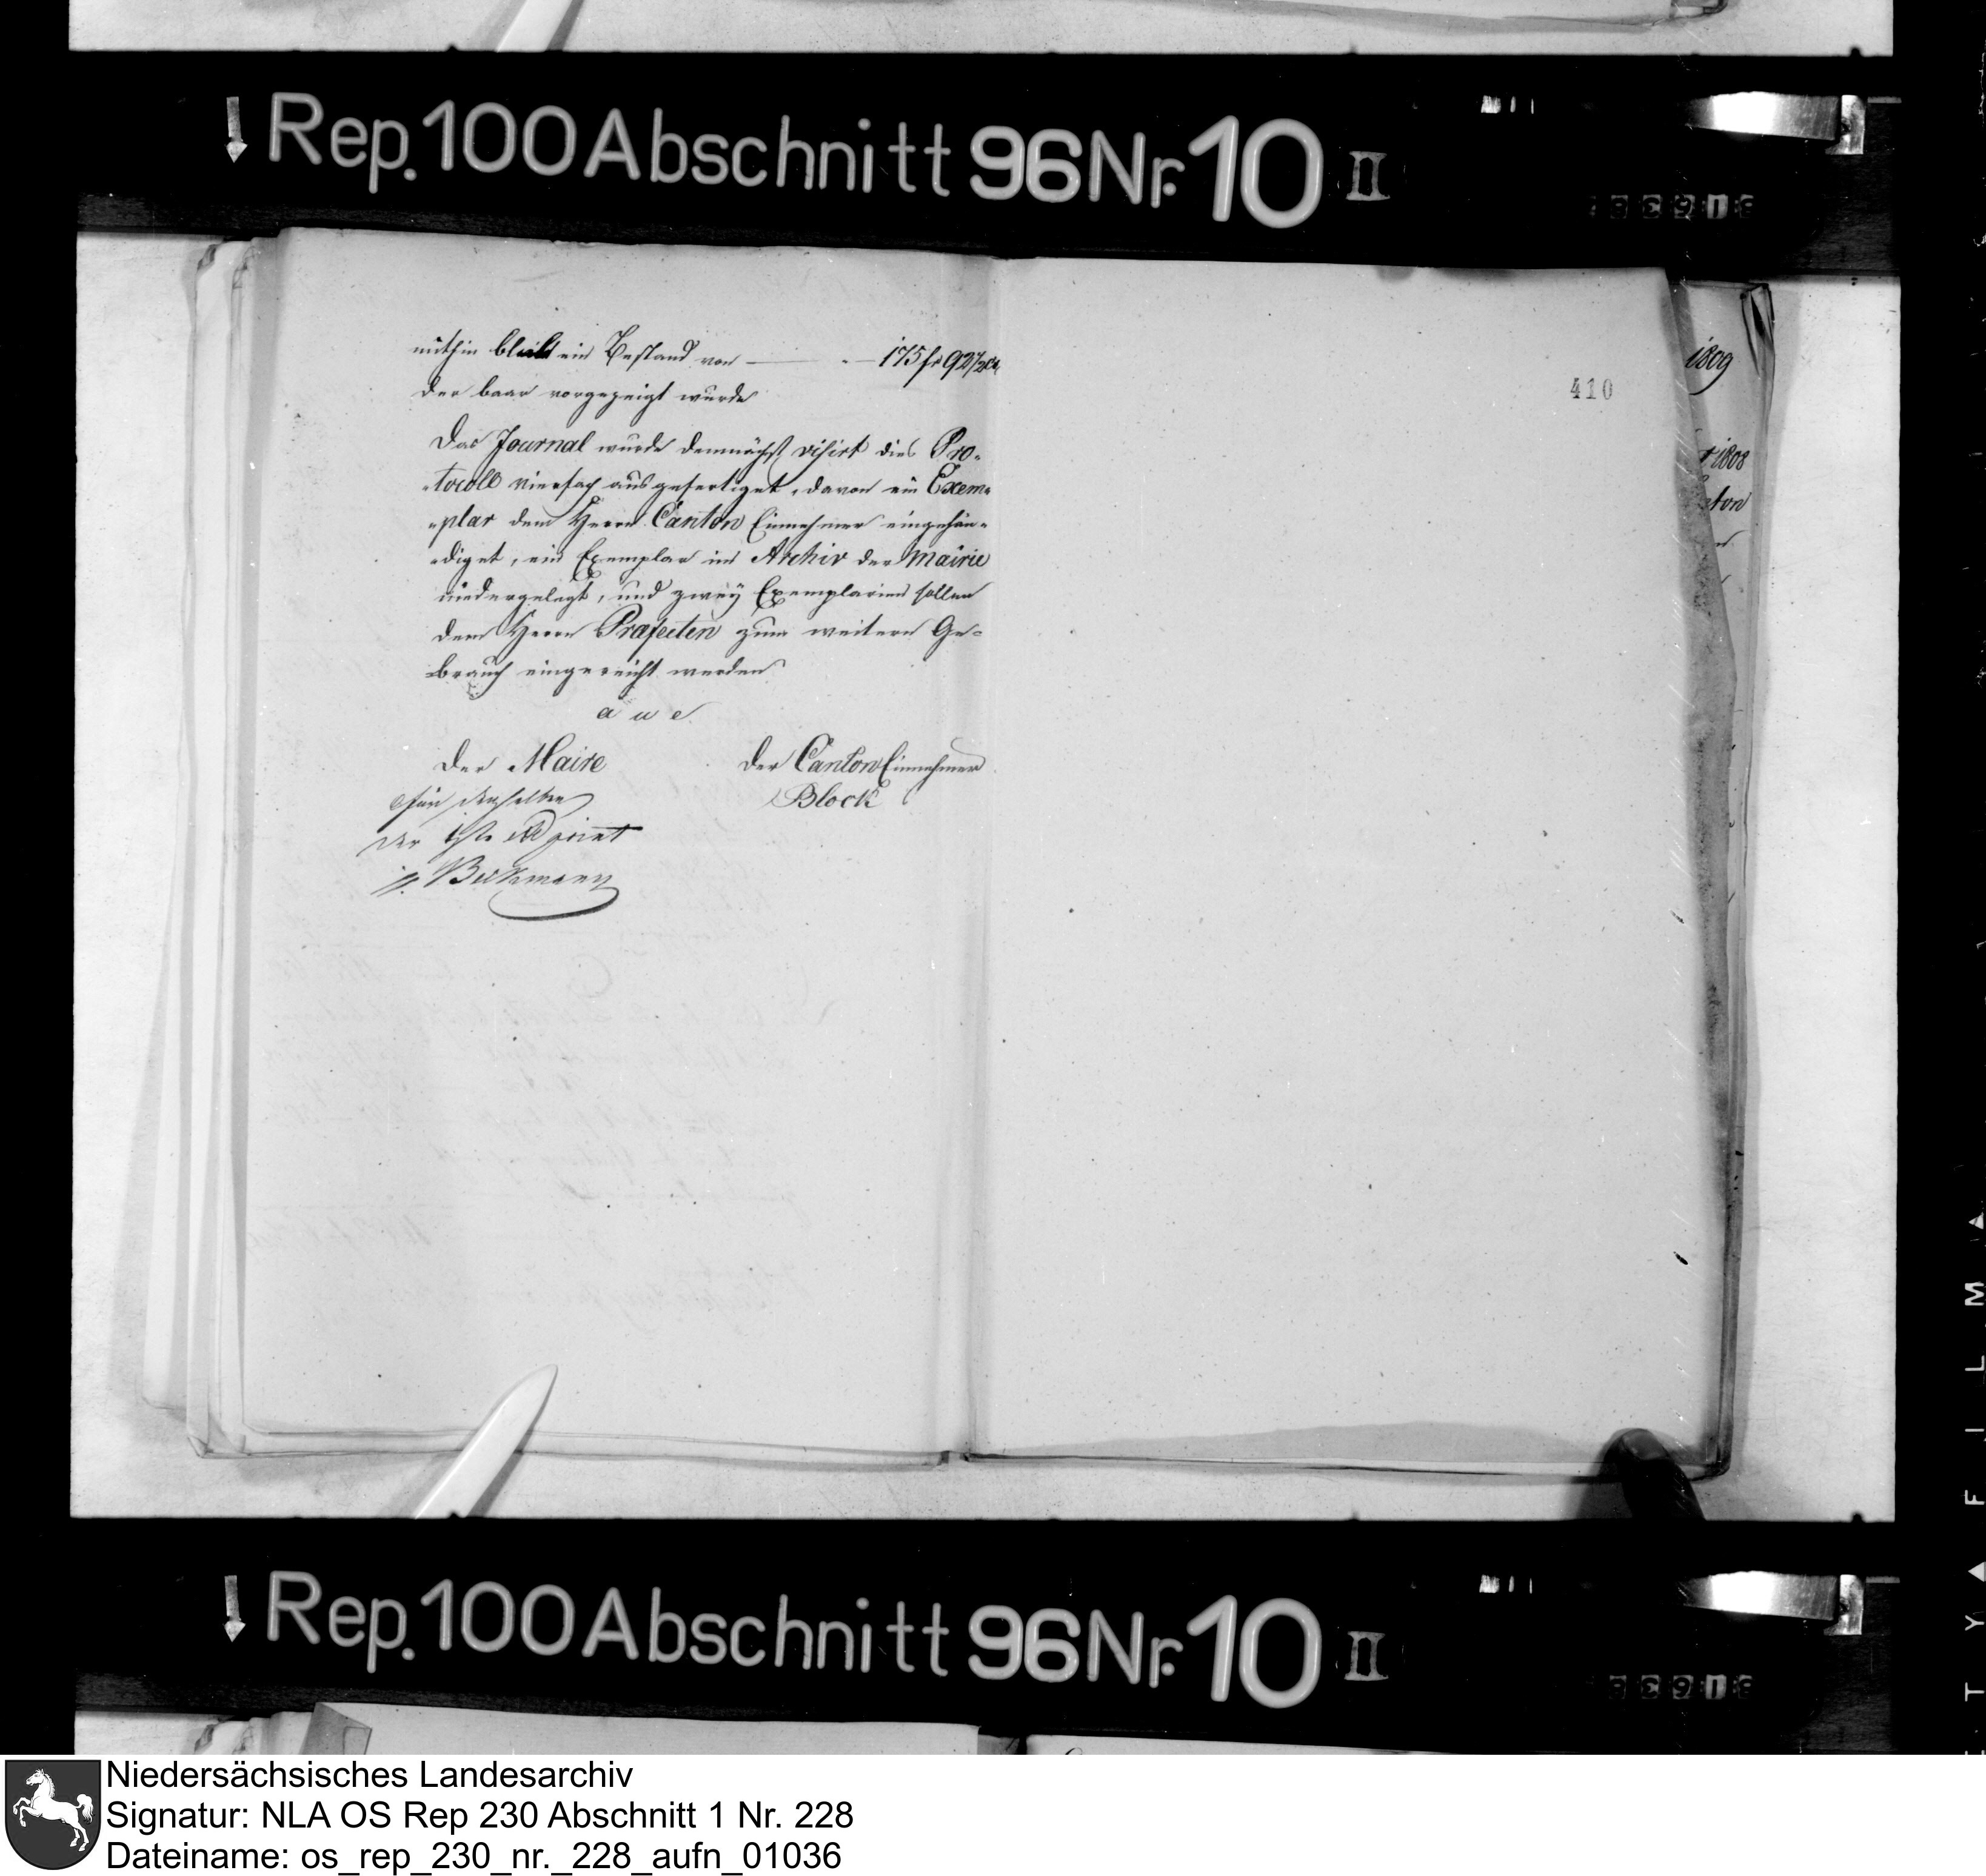 Rep. 100 Abschnitt 96 Nr. 10 II
mithin bleibt ein Bestand von — 175 fr 92 1/2 Ct
der baar vorgezeigt wurde
Das Journal wurde demnächst visirt dies Pro-
-tocoll vierfach ausgefertiget, davon ein Exem-
-plar dem Herrn Canton Einnehmer eingehän-
-diget, ein Exemplar im Archiv der Mairie
niedergelegt, und zwey Exemplarien sollen
dem Herrn Præfecten zum weitern Ge-
-brauch eingereicht werden
a u s
Der Maire
für denselben
der 1ste Adjoint
Beckmann
Der Canton Einnehmer
Block
410
1809
1808
ton
Rep. 100 Abschnitt 96 Nr. 10 II
Niedersächsisches Landesarchiv
Signatur: NLA OS Rep 230 Abschnitt 1 Nr. 228
Dateiname: os_rep_230_nr._228_aufn_01036